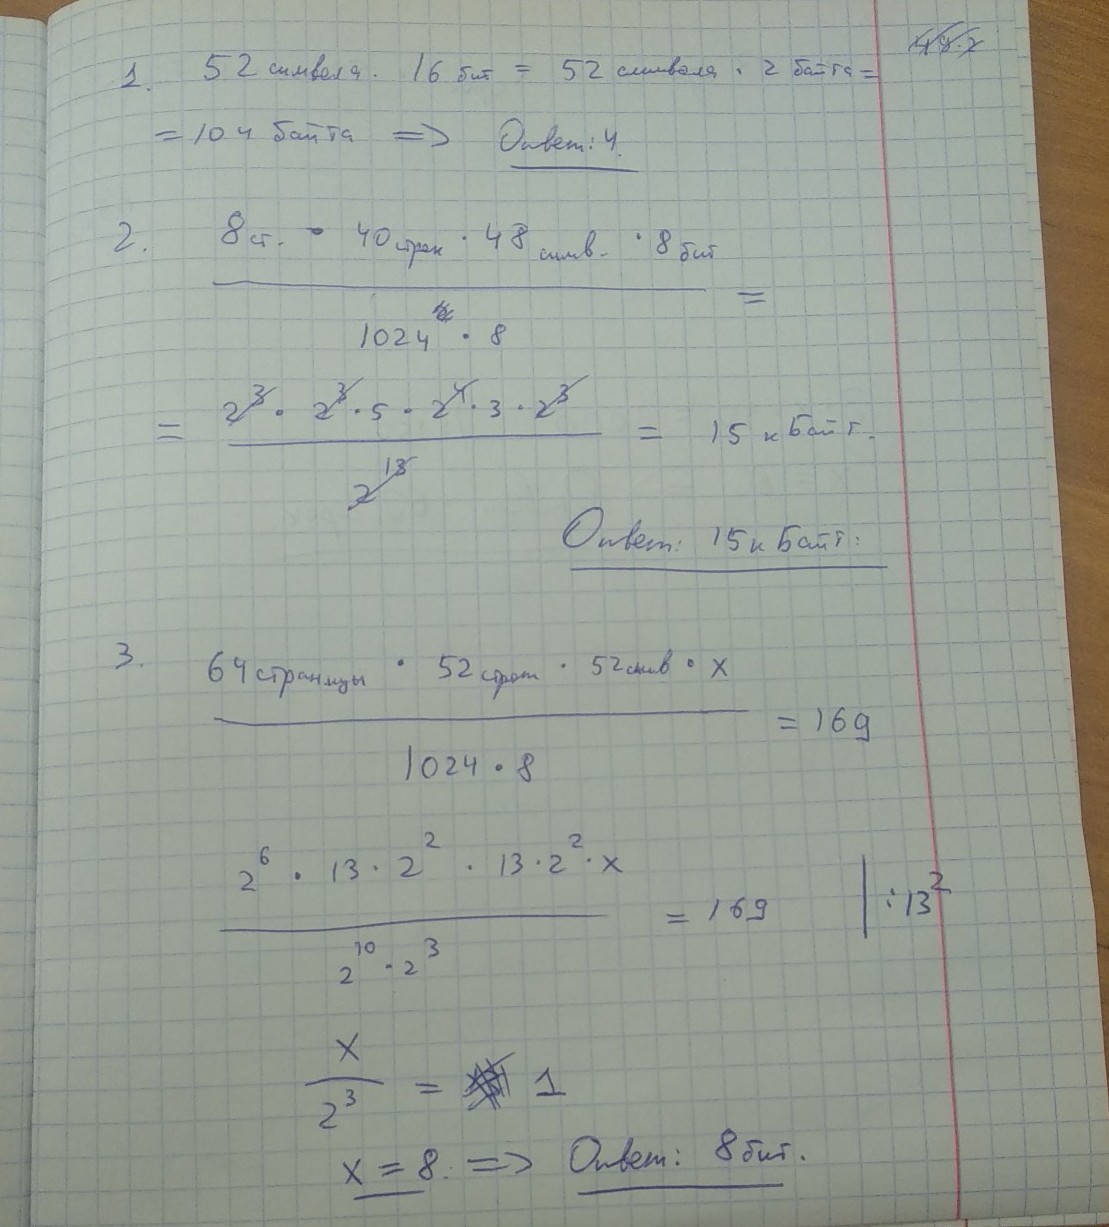 1. 52 символа · 16 бит = 52 символа · 2 байта =
= 104 байта => Ответ: 4.
2. 8 ст. · 40 строк · 48 симв. · 8 бит
1024 · 8
=
= 2^3 · 2^3 · 5 · 2^4 · 3 · 2^3
2^13
= 15 кБайт.
Ответ: 15 кБайт.
3. 64 страницы · 52 строк · 52 симв · x
1024 · 8
= 169
2^6 · 13 · 2^2 · 13 · 2^2 · x
2^10 · 2^3
= 169 | : 13^2
x
2^3
= 1
x = 8. => Ответ: 8 бит.